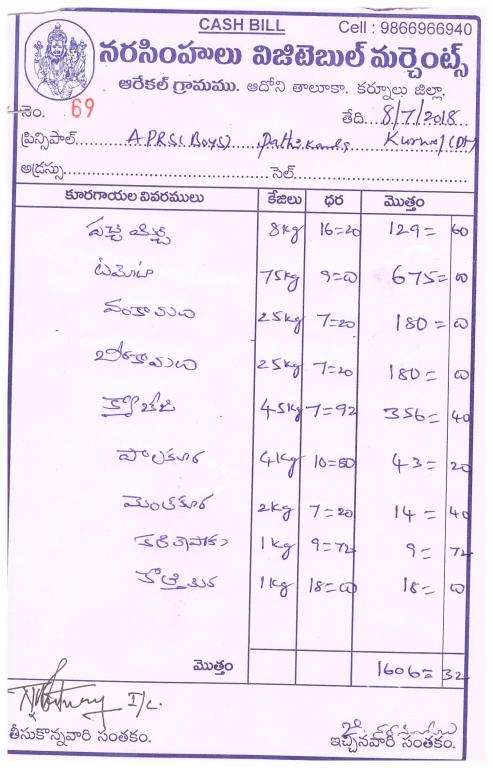 CASH BILL
Cell : 9866966940
నరసింహులు విజిటెబుల్ మర్చెంట్స్
ఆరేకల్ గ్రామము. ఆదోని తాలూకా. కర్నూలు జిల్లా.
నెం. 69
తేది. 8/7/2018
ప్రిన్సిపాల్ APRS(Boys) Pathikonda Kurnool(Dt)
అడ్రస్సు సెల్
కూరగాయల వివరములు కేజిలు ధర మొత్తం
పచ్చి మిర్చి 8kg 16=20 129= 60
టమోటా 75kg 9=00 675= 00
వంకాయలు 25kg 7=20 180= 00
బీరకాయలు 25kg 7=20 180= 00
క్యాబేజి 45kg 7=92 356= 40
పాలకూర 4kg 10=80 43= 20
మెంతికూర 2kg 7=20 14= 40
కరివేపాకు 1kg 9=72 9= 72
కొత్తిమీర 1kg 18=00 18= 00
మొత్తం 1606= 32
I/c.
తీసుకొన్నవారి సంతకం.
ఇచ్చినవారి సంతకం.